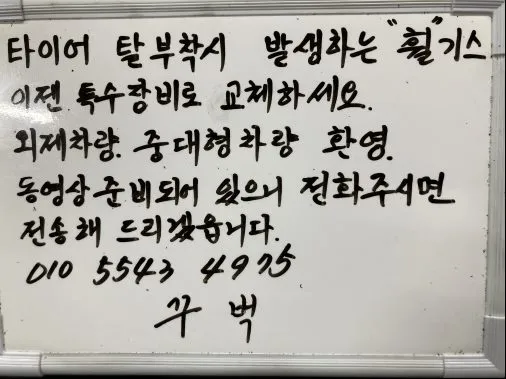 타이어 탈부착시 발생하는 "휠"기스
이젠 특수장비로 교체하세요.
외제차량. 중대형차량 환영.
동영상 준비되어 있으니 전화주시면
전송해 드리겠읍니다.
010 5543 4975
꾸벅